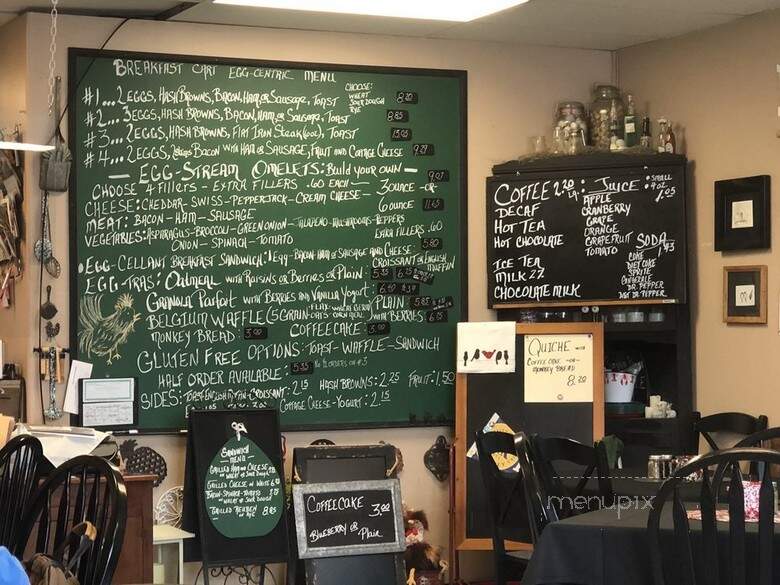 BREAKFAST CART EGG-CENTRIC MENU
CHOOSE:
WHEAT
SOUR DOUGH
RYE
#1...2 EGGS, HASH BROWNS, BACON, HAM OR SAUSAGE, TOAST 8.20
#2...3 EGGS, HASH BROWNS, BACON, HAM OR SAUSAGE, TOAST 8.85
#3...2 EGGS, HASH BROWNS, FLAT IRON STEAK (6oz), TOAST
#4...2 EGGS, BACON WITH HAM OR SAUSAGE, FRUIT AND COTTAGE CHEESE
— EGG-STREAM OMELETS: BUILD YOUR OWN —
CHOOSE 4 FILLERS - EXTRA FILLERS .60 EACH
3 OUNCE -OR-
6 OUNCE
CHEESE: CHEDDAR-SWISS-PEPPERJACK-CREAM CHEESE
MEAT: BACON-HAM-SAUSAGE
VEGETABLES: ASPARAGUS-BROCCOLI-GREEN ONION-JALAPEÑO-MUSHROOMS-PEPPERS
ONION-SPINACH-TOMATO
EXTRA FILLERS .60
EGG-CELLANT BREAKFAST SANDWICH: 1 EGG-BACON, HAM OR SAUSAGE AND CHEESE: 5.80
CROISSANT OR ENGLISH MUFFIN
EGG-TRAS: OATMEAL WITH RAISINS OR BERRIES OR PLAIN:
GRANOLA PARFAIT WITH BERRIES AND VANILLA YOGURT:
BELGIUM WAFFLE PLAIN WITH BERRIES
MONKEY BREAD: 3.00 COFFEE CAKE: 3.00
GLUTEN FREE OPTIONS: TOAST-WAFFLE-SANDWICH
HALF ORDER AVAILABLE: 5.35
SIDES: TOAST-ENGLISH MUFFIN-CROISSANT: 2.15 HASH BROWNS: 2.25 FRUIT: 1.50
COTTAGE CHEESE-YOGURT: 2.15
COFFEE 2.20
DECAF
HOT TEA
HOT CHOCOLATE
ICE TEA
MILK
CHOCOLATE MILK
JUICE: SMALL
4 oz
APPLE
CRANBERRY
GRAPE
ORANGE
GRAPEFRUIT
TOMATO
SODA
COKE
DIET COKE
SPRITE
GINGERALE
DR. PEPPER
DIET DR. PEPPER
QUICHE WITH
COFFEE CAKE -OR-
MONKEY BREAD
8.20
SANDWICH
MENU
GRILLED HAM AND CHEESE
GRILLED CHEESE ON WHITE
BACON-SPINACH-TOMATO
GRILLED REUBEN
COFFEECAKE 3.00
BLUEBERRY OR
PLAIN
menupix